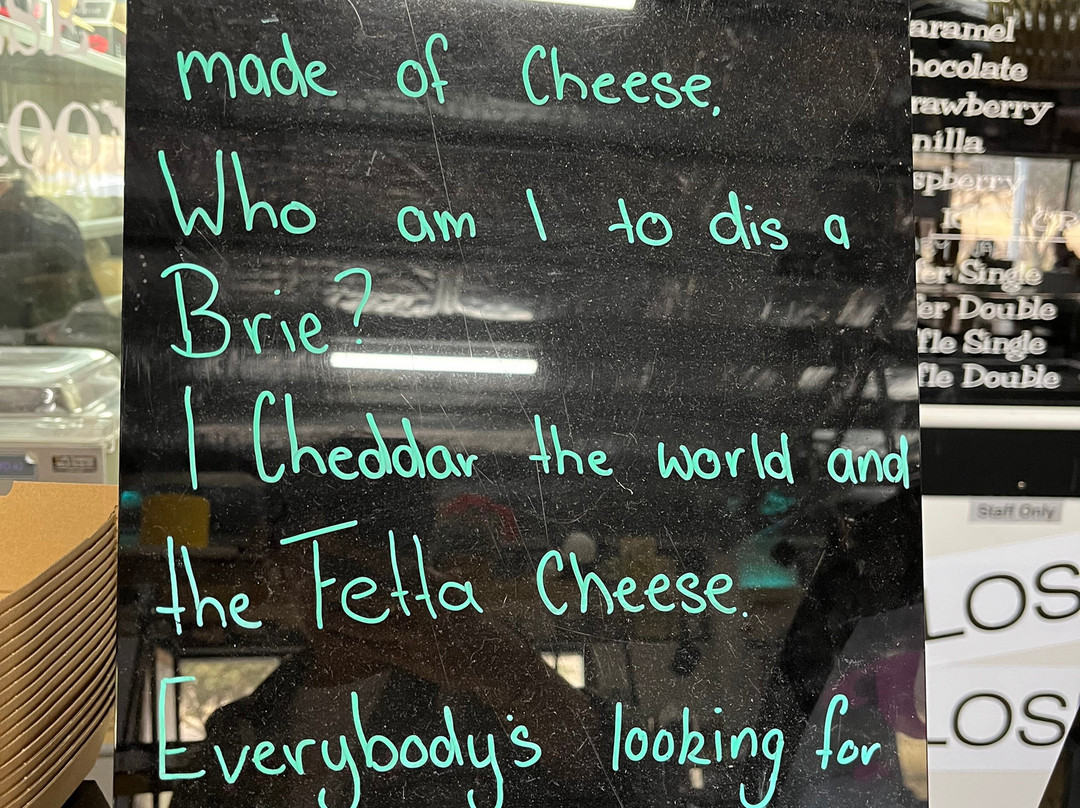 made of Cheese.
Who am I to dis a
Brie?
I Cheddar the world and
the Fetta Cheese.
Everybody's looking for
aramel
hocolate
rawberry
nilla
spberry
er Single
er Double
fle Single
fle Double
Staff Only
LOS
LOS